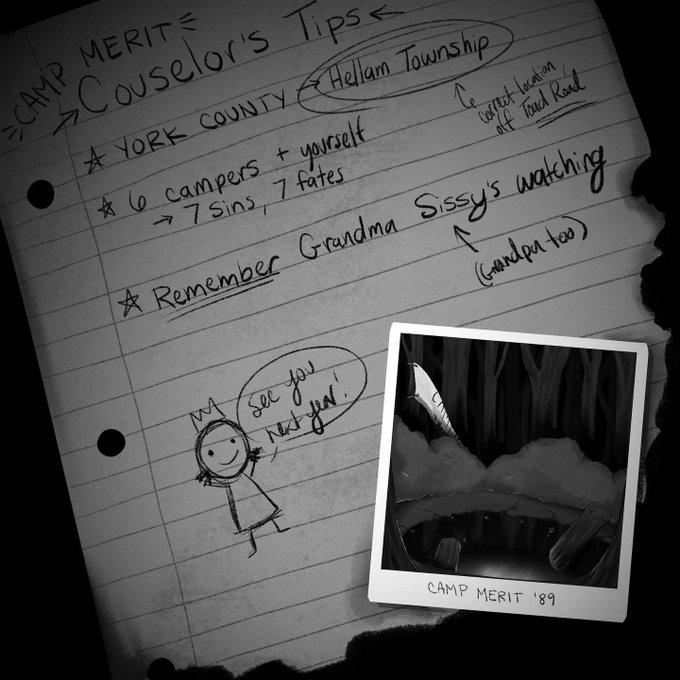 CAMP MERIT
Couselor's Tips
YORK COUNTY → Hellam Township
correct location
off Toad Road
6 campers + yourself
→ 7 sins, 7 fates
Remember Grandma Sissy's watching
(Grandpa too)
see you
next year!
CAMP MERIT '89